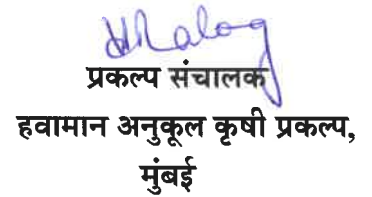 प्रकल्प संचालक
हवामान अनुकूल कृषी प्रकल्प,
मुंबई